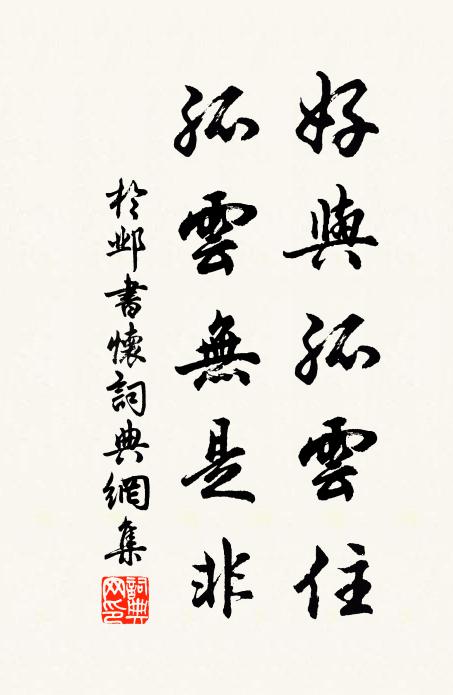 好與孤雲住
孤雲無是非
於鄴書懷詞典網集
詞典網印